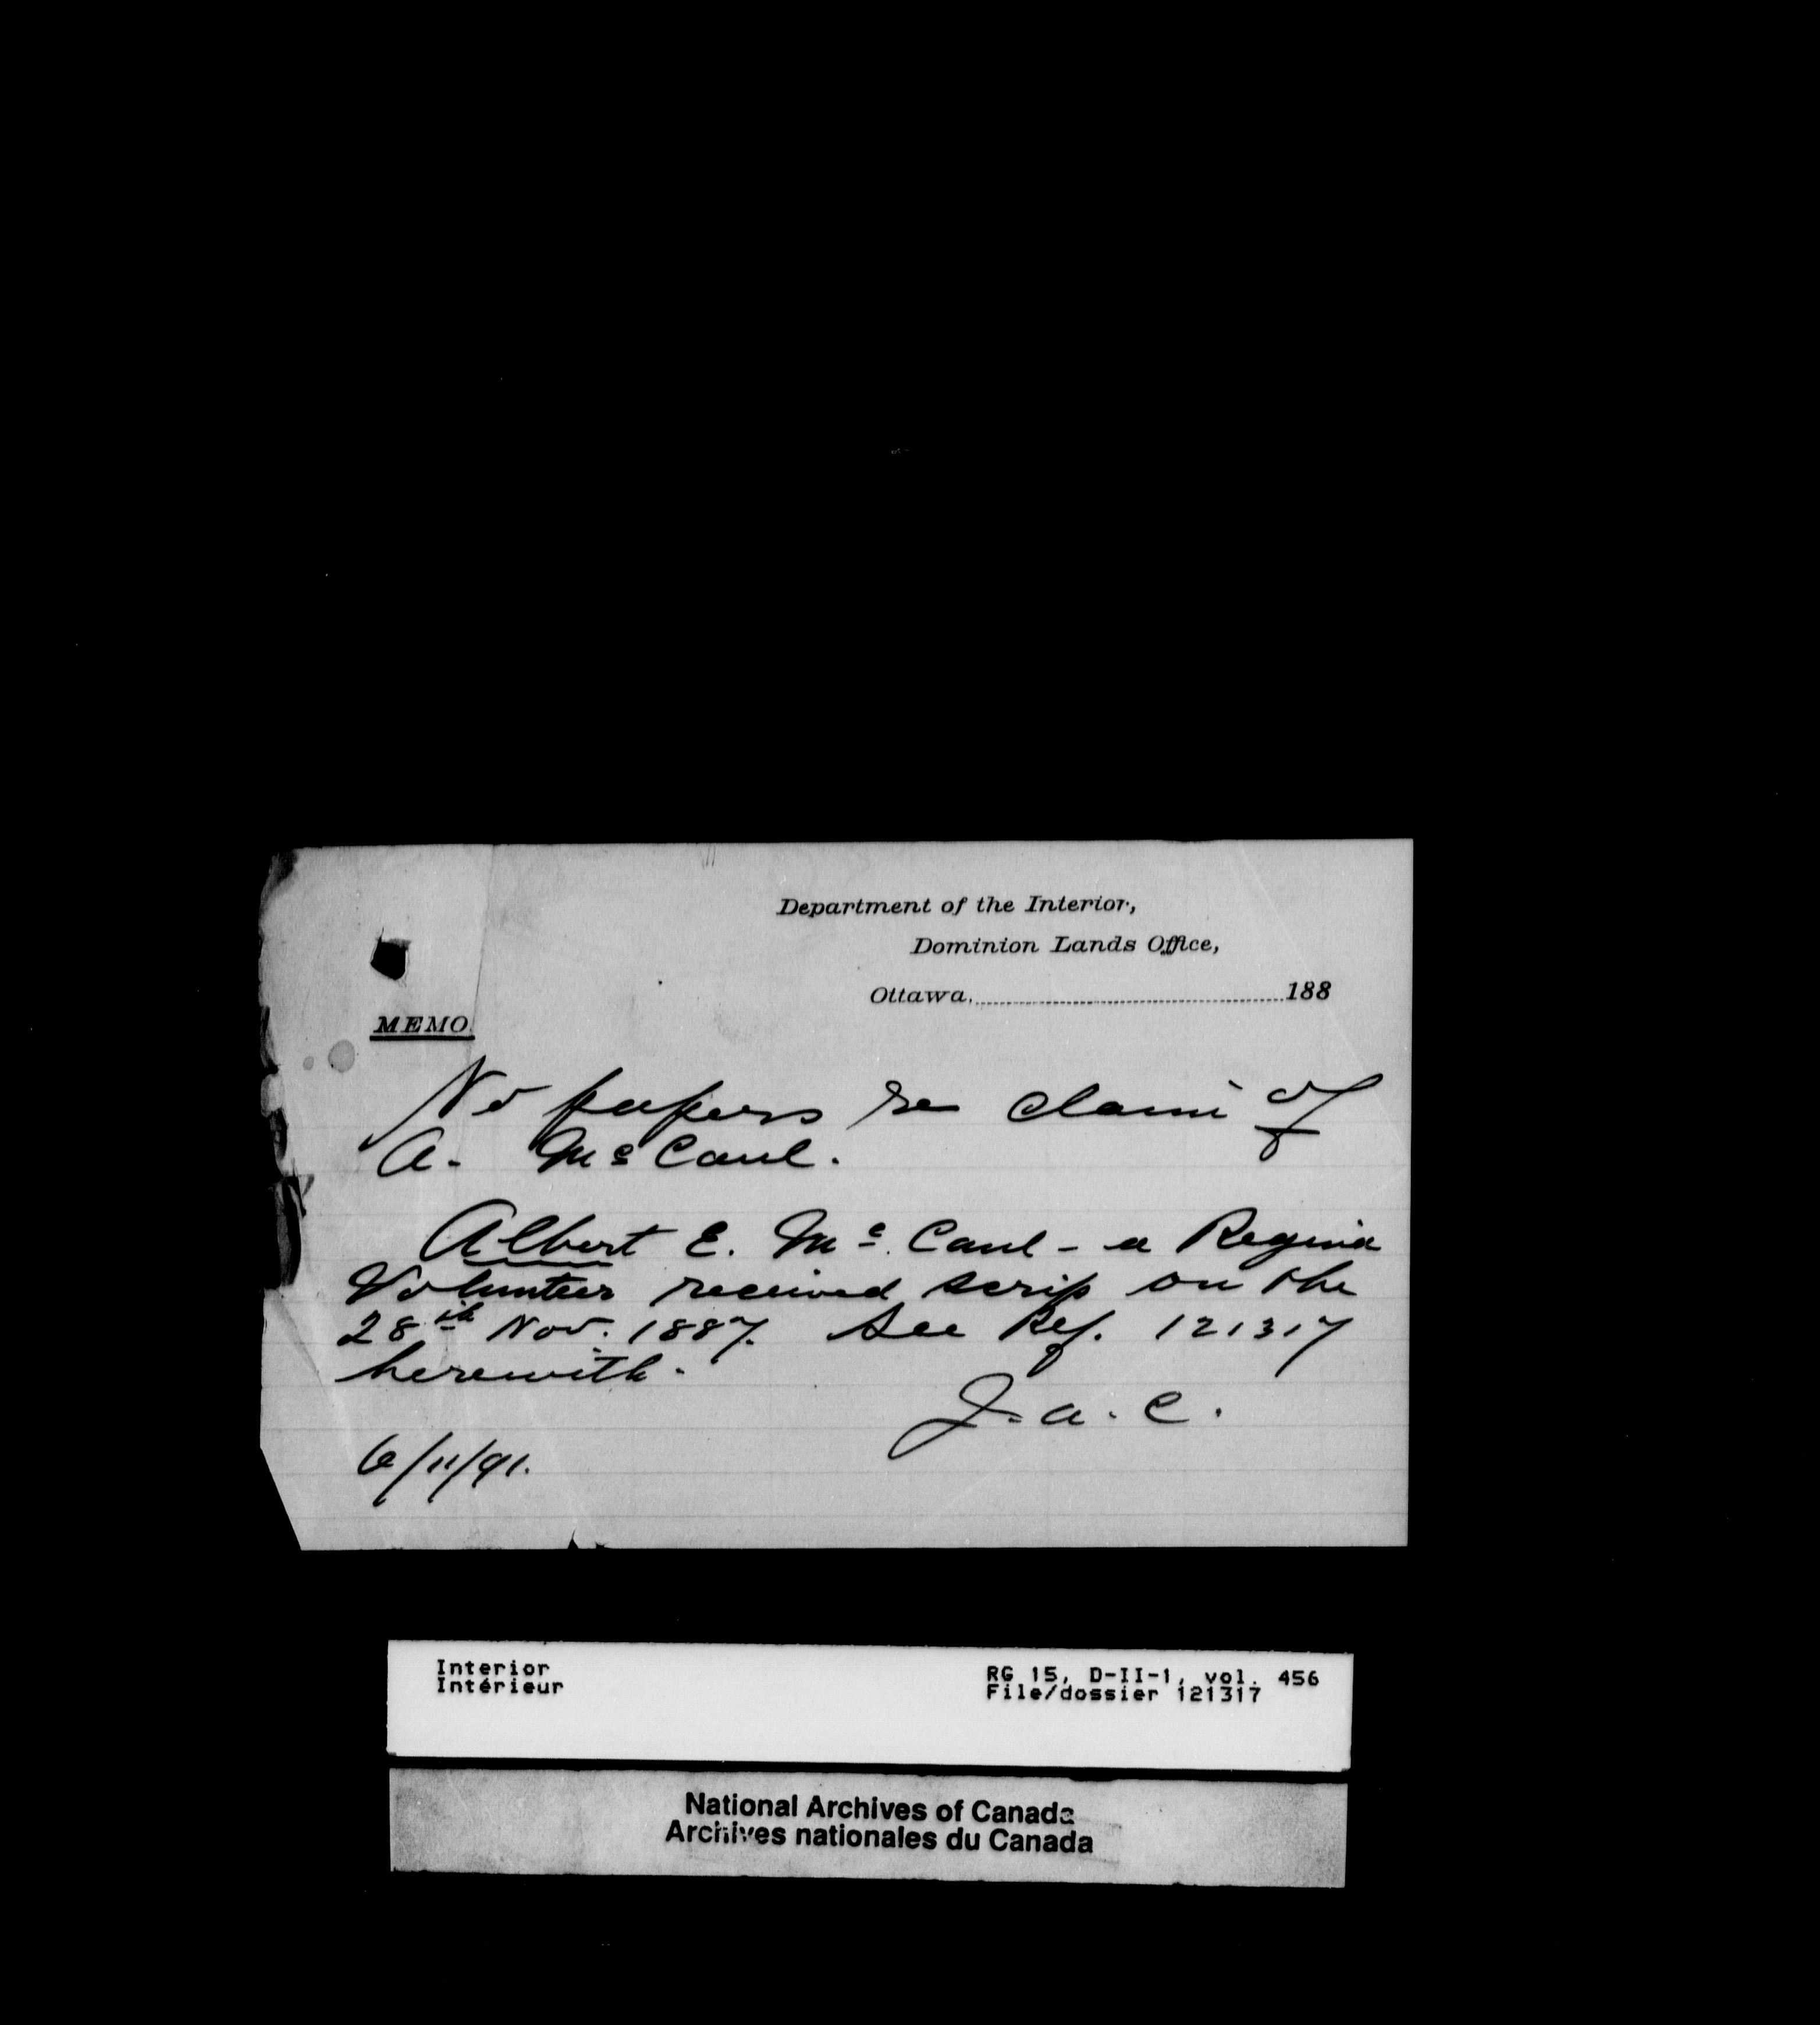 Department of the Interior,
Dominion Lands Office,
Ottawa, 188
MEMO.
No papers re claim of
A. McCaul.
Albert E. McCaul - a Regina
Volunteer received scrip on the
28th Nov. 1887. See Ref. 121317
herewith.
J. A. C.
6/11/91.
Interior
Intérieur
RG 15, D-II-1, vol. 456
File/dossier 121317
National Archives of Canada
Archives nationales du Canada